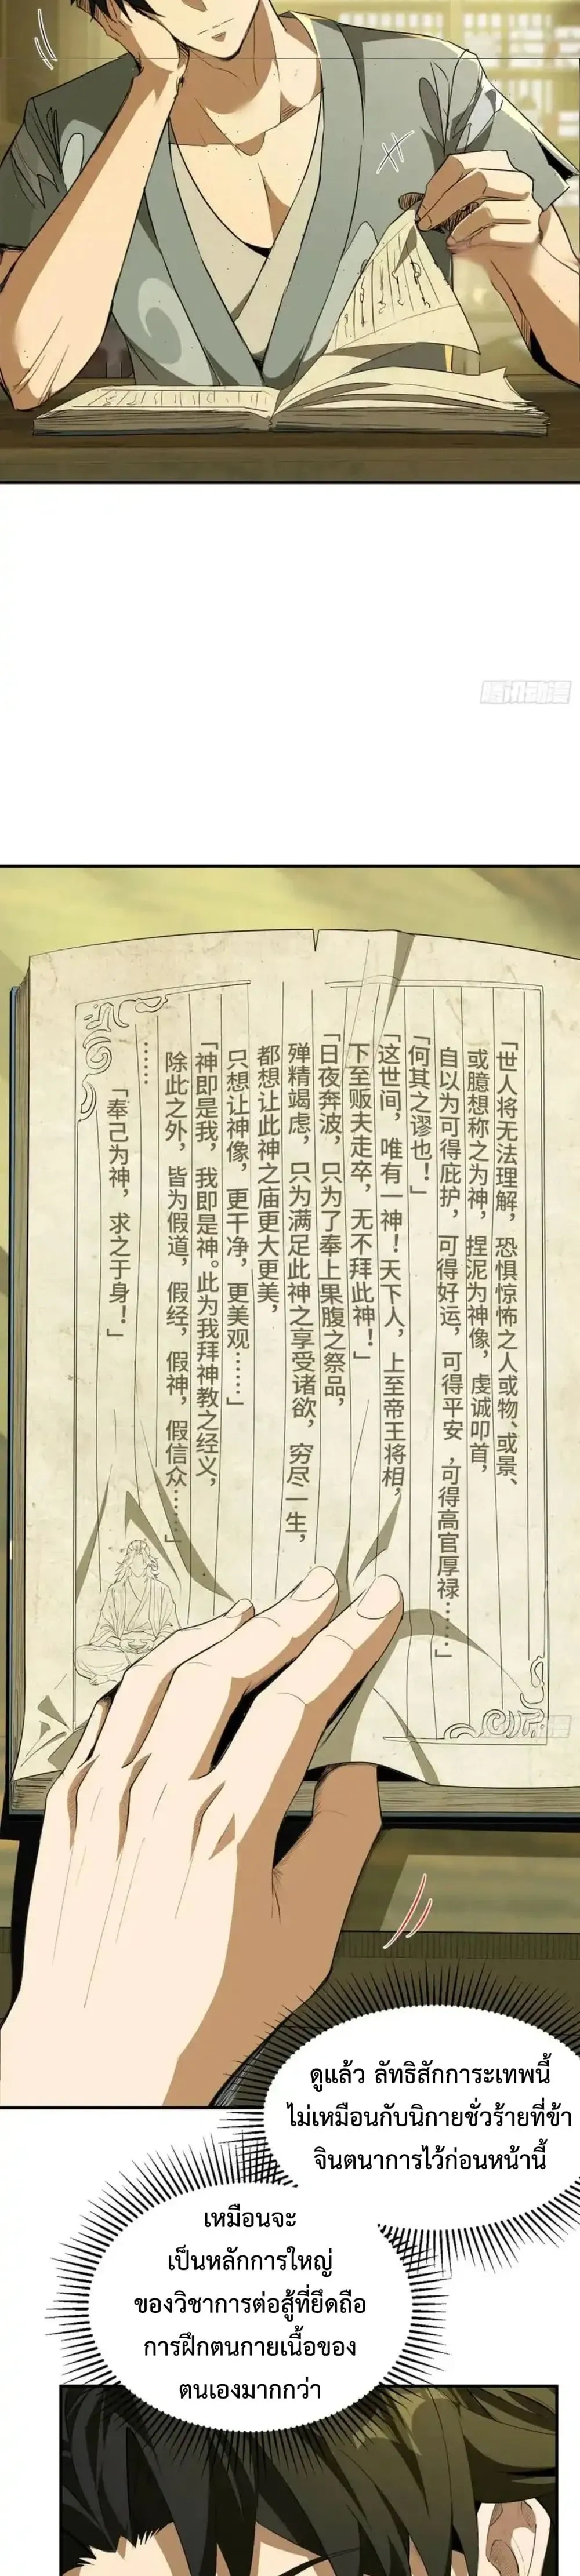 腾讯动漫
「世人将无法理解，恐惧惊怖之人或物、或景、
或臆想称之为神，捏泥为神像，虔诚叩首，
自以为可得庇护，可得好运，可得平安，可得高官厚禄……」
「何其之谬也！」
「这世间，唯有一神！天下人，上至帝王将相，
下至贩夫走卒，无不拜此神！」
「日夜奔波，只为了奉上果腹之祭品，
殚精竭虑，只为满足此神之享受诸欲，穷尽一生，
都想让此神之庙更大更美，
只想让神像，更干净，更美观……」
「神即是我，我即是神。此为我拜神教之经义，
除此之外，皆为假道，假经，假神，假信众……」
……
「奉己为神，求之于身！」
ดูแล้ว ลัทธิสักการะเทพนี้
ไม่เหมือนกับนิกายชั่วร้ายที่ข้า
จินตนาการไว้ก่อนหน้านี้
เหมือนจะ
เป็นหลักการใหญ่
ของวิชาการต่อสู้ที่ยึดถือ
การฝึกตนกายเนื้อของ
ตนเองมากกว่า